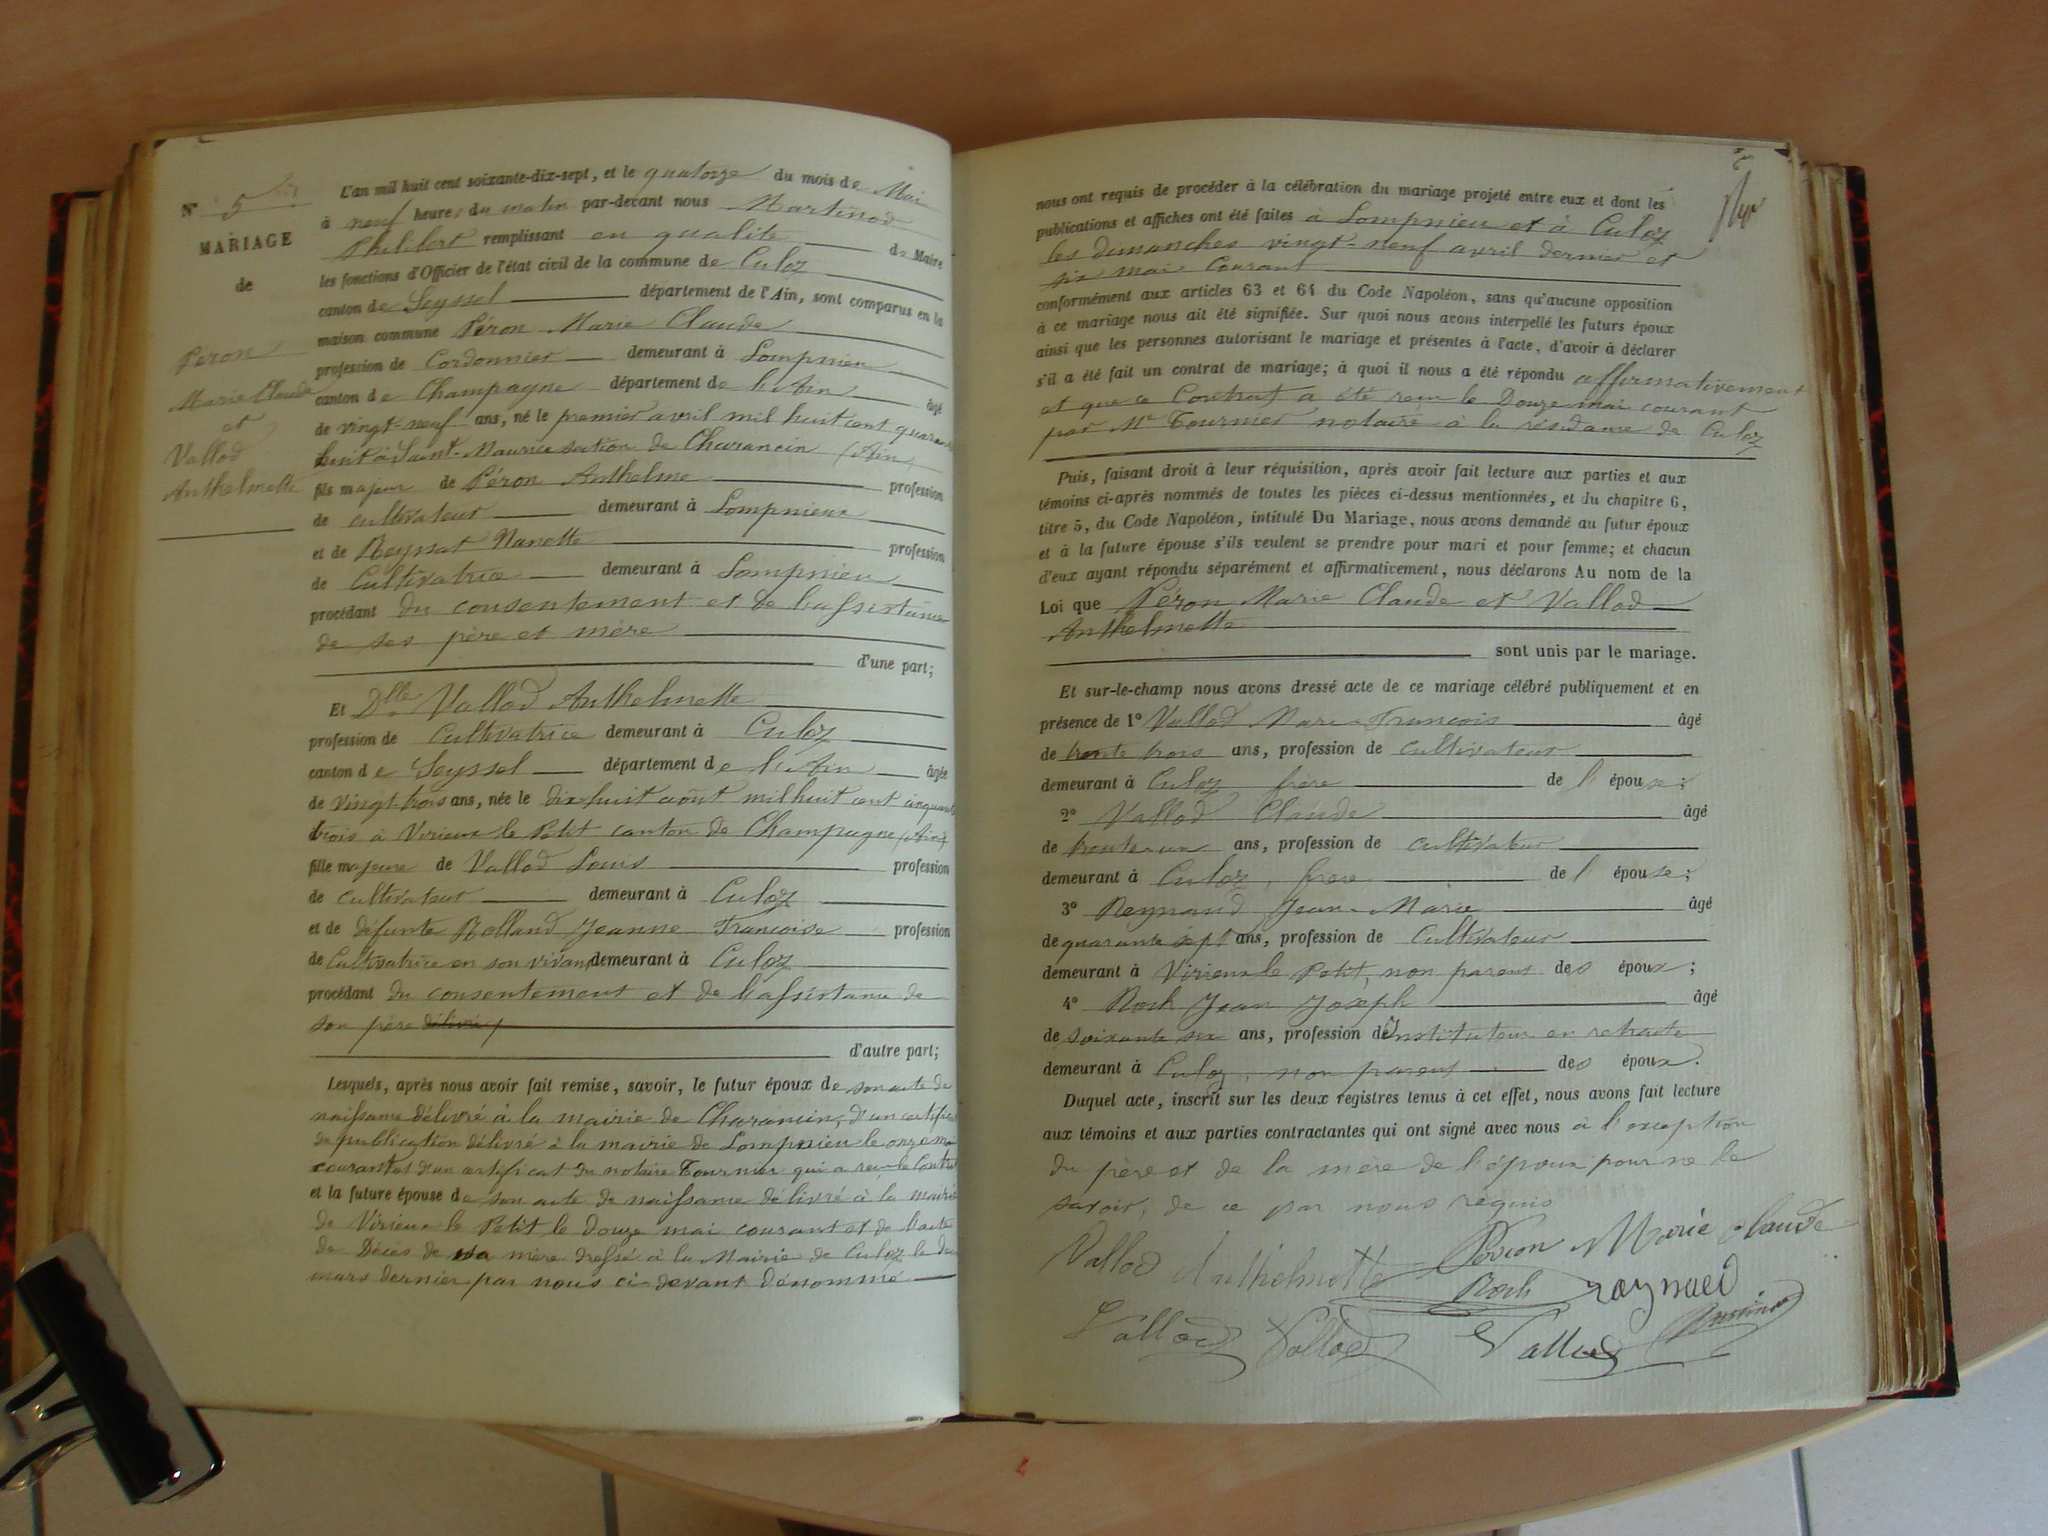 N° 5
MARIAGE
de
Péron
Marie Claude
et
Vallod
Anthelmette
L'an mil huit cent soixante-dix-sept, et le quatorze du mois de Mai
à neuf heures du matin par-devant nous Martinod
Philibert remplissant en qualité de Maire
les fonctions d'Officier de l'état civil de la commune de Culoz
canton de Seyssel département de l'Ain, sont comparus en la
maison commune Péron Marie Claude
profession de Cordonnier demeurant à Lompnieu
canton de Champagne département de l'Ain âgé
de vingt-neuf ans, né le premier avril mil huit cent quarante
huit à Saint-Maurice section de Charancin (Ain)
fils majeur de Péron Anthelme profession
de cultivateur demeurant à Lompnieu
et de Reyssat Nanette profession
de Cultivatrice demeurant à Lompnieu
procédant du consentement et de l'assistance
de ses père et mère
d'une part;
Et Dlle Vallod Anthelmette
profession de Cultivatrice demeurant à Culoz
canton de Seyssel département de l'Ain âgée
de vingt-trois ans, née le dix-huit août mil huit cent cinquante
trois à Virieux le Petit canton de Champagne (Ain)
fille majeure de Vallod Louis profession
de cultivateur demeurant à Culoz
et de défunte Rolland Jeanne Françoise profession
de Cultivatrice en son vivant demeurant à Culoz
procédant du consentement et de l'assistance de
son père
d'autre part;
Lesquels, après nous avoir fait remise, savoir, le futur époux de son acte de
naissance délivré à la mairie de Charancin, d'un certificat
de publication délivré à la mairie de Lompnieu le onze mai
courant et d'un certificat du notaire Tournier qui a reçu le Contrat
et la future épouse de son acte de naissance délivré à la mairie
de Virieux le Petit le douze mai courant et de l'acte
de Décès de sa mère dressé à la Mairie de Culoz le
mars dernier par nous ci-devant dénommé
nous ont requis de procéder à la célébration du mariage projeté entre eux et dont les
publications et affiches ont été faites à Lompnieu et à Culoz
les dimanches vingt-neuf avril dernier et
six mai Courant
conformément aux articles 63 et 64 du Code Napoléon, sans qu'aucune opposition
à ce mariage nous ait été signifiée. Sur quoi nous avons interpellé les futurs époux
ainsi que les personnes autorisant le mariage et présentes à l'acte, d'avoir à déclarer
s'il a été fait un contrat de mariage; à quoi il nous a été répondu affirmativement
et que ce Contrat a été reçu le Douze mai courant
par Me Tournier notaire à la résidence de Culoz
Puis, faisant droit à leur réquisition, après avoir fait lecture aux parties et aux
témoins ci-après nommés de toutes les pièces ci-dessus mentionnées, et du chapitre 6,
titre 5, du Code Napoléon, intitulé Du Mariage, nous avons demandé au futur époux
et à la future épouse s'ils veulent se prendre pour mari et pour femme; et chacun
d'eux ayant répondu séparément et affirmativement, nous déclarons Au nom de la
Loi que Péron Marie Claude et Vallod
Anthelmette
sont unis par le mariage.
Et sur-le-champ nous avons dressé acte de ce mariage célébré publiquement et en
présence de 1° Vallod Marie François âgé
de trente trois ans, profession de cultivateur
demeurant à Culoz frère de l'épouse;
2° Vallod Claude âgé
de trente-un ans, profession de cultivateur
demeurant à Culoz, frère de l'épouse;
3° Reynaud Jean-Marie âgé
de quarante sept ans, profession de Cultivateur
demeurant à Virieux le Petit, non parent des époux;
4° Roch Jean Joseph âgé
de soixante six ans, profession de Instituteur en retraite
demeurant à Culoz, non parent des époux.
Duquel acte, inscrit sur les deux registres tenus à cet effet, nous avons fait lecture
aux témoins et aux parties contractantes qui ont signé avec nous à l'exception
du père et de la mère de l'époux pour ne le
savoir, de ce par nous requis
Vallod Anthelmette Perron Marie claude
Roch raynaud
Vallod Vallod Vallod Martinod